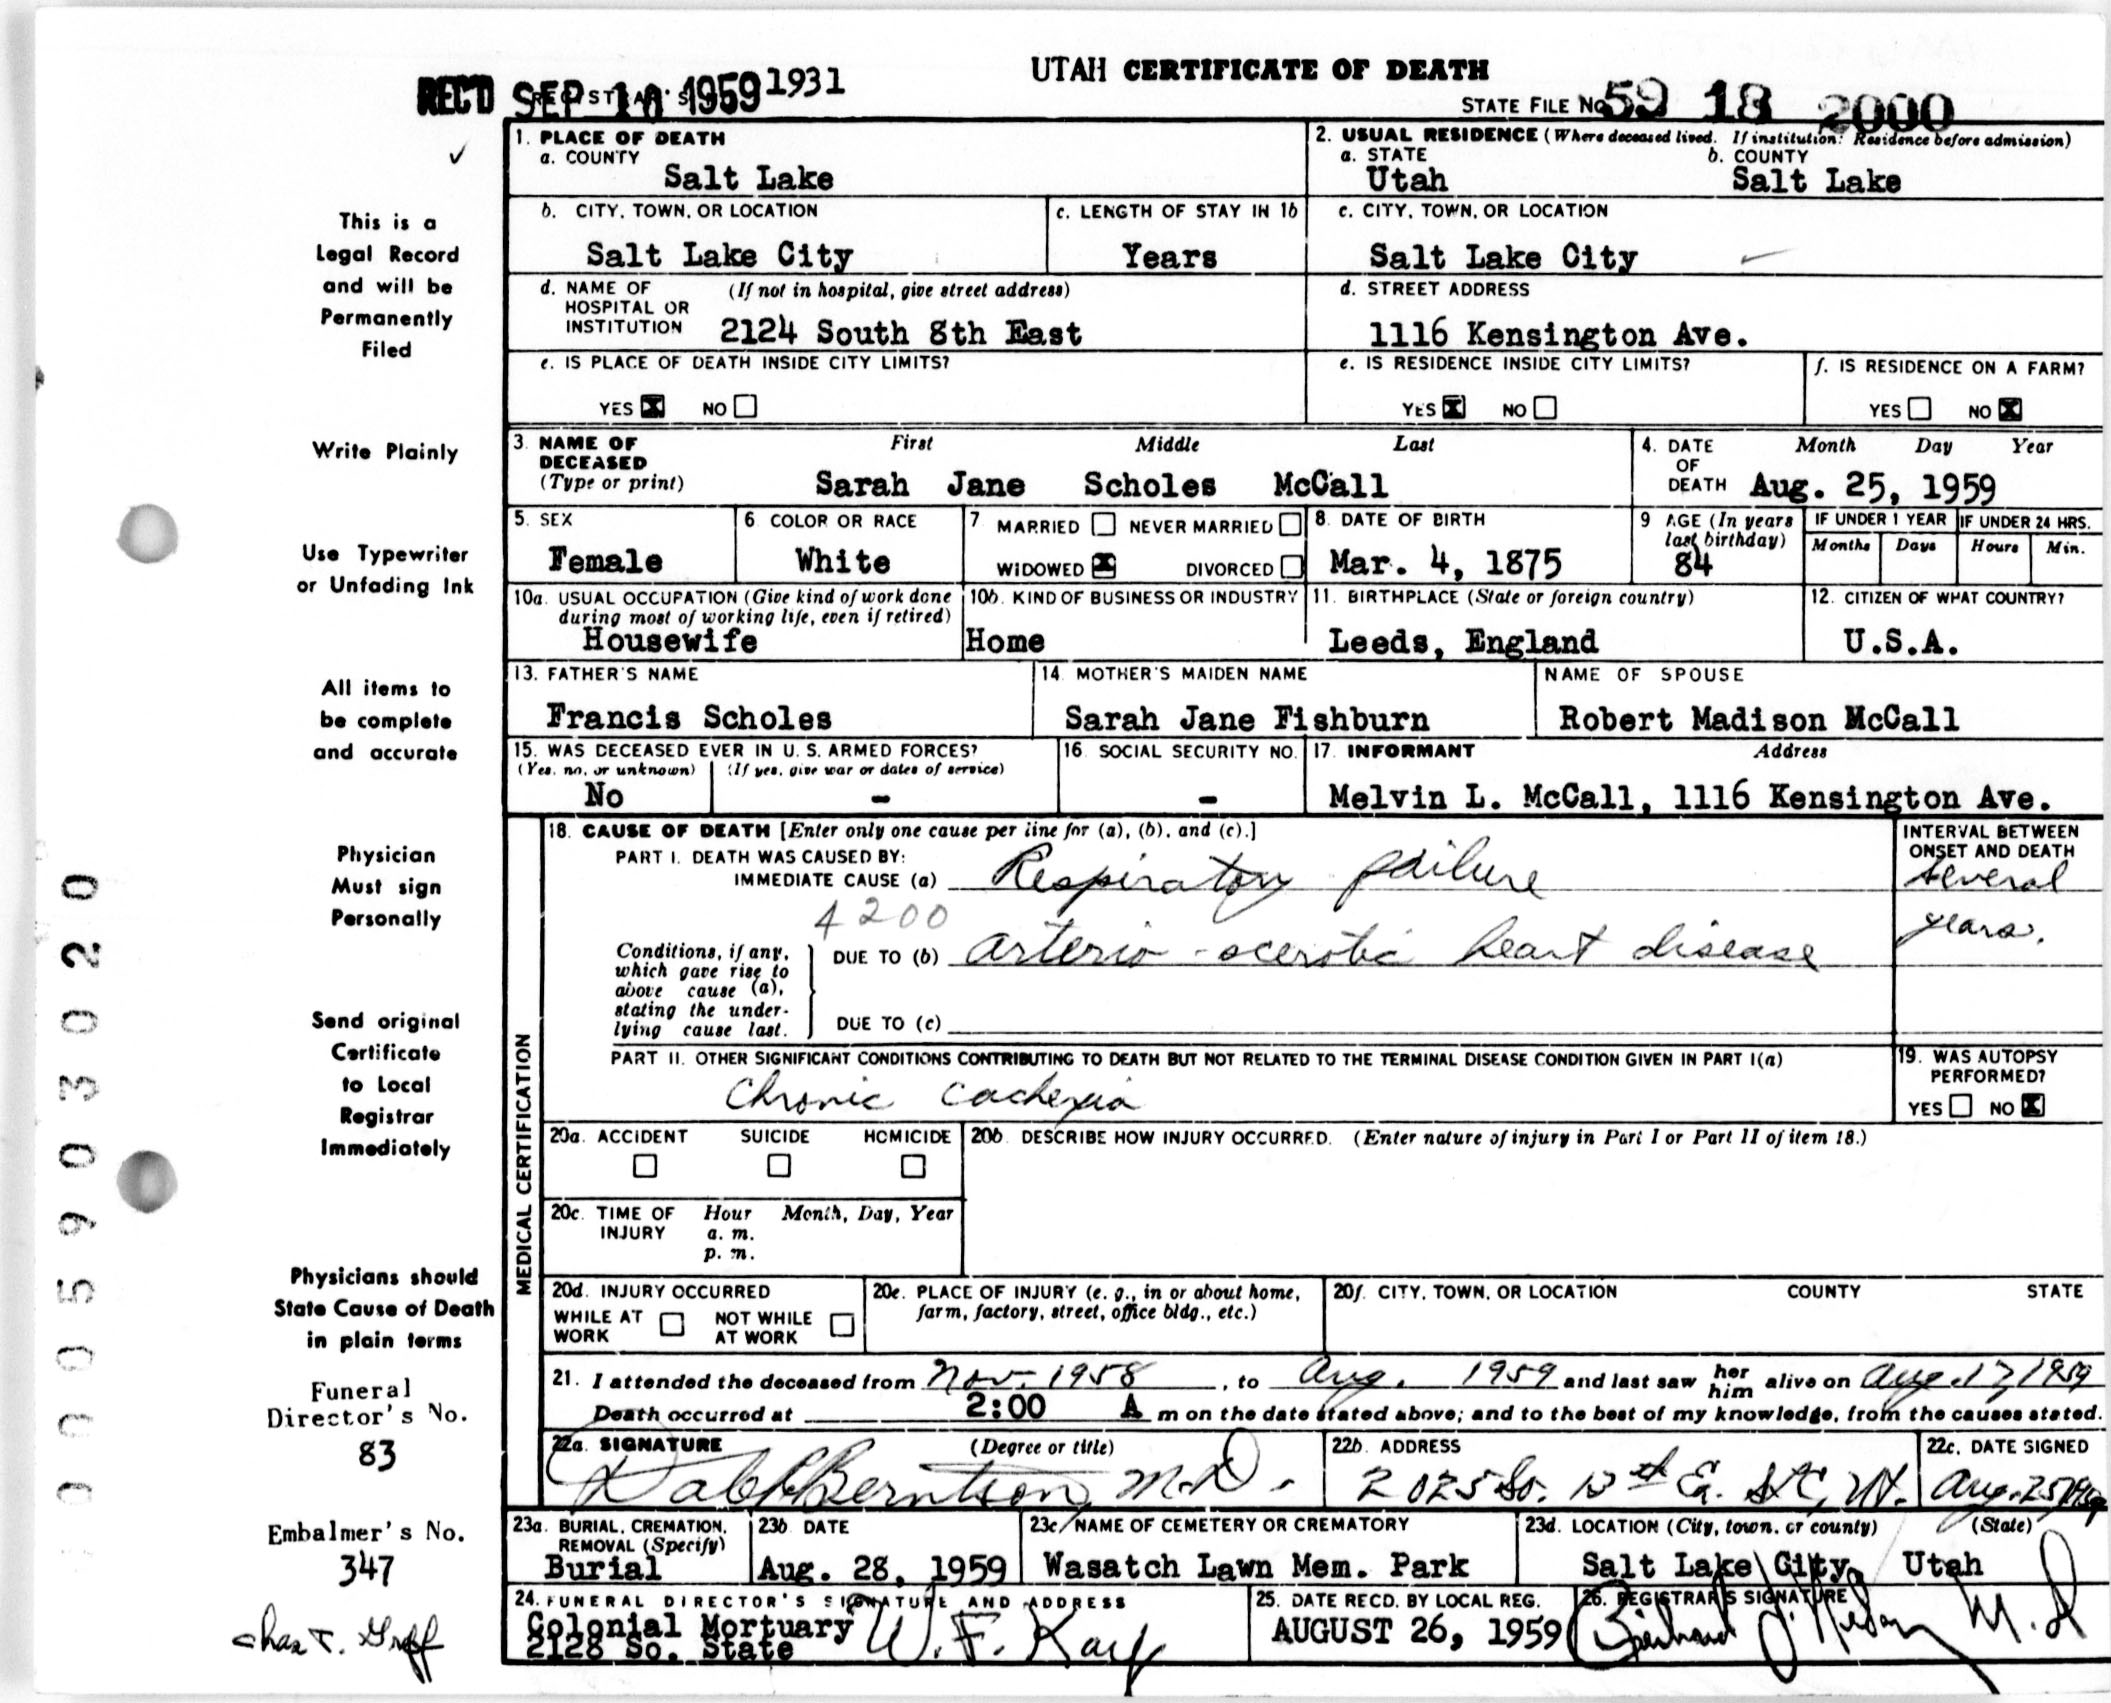 UTAH CERTIFICATE OF DEATH
REC'D SEP 10 1959 1931
STATE FILE No. 59 18 2000
1. PLACE OF DEATH
a. COUNTY
Salt Lake
2. USUAL RESIDENCE (Where deceased lived. If institution: Residence before admission)
a. STATE b. COUNTY
Utah Salt Lake
b. CITY, TOWN, OR LOCATION
Salt Lake City
c. LENGTH OF STAY IN 1b
Years
c. CITY, TOWN, OR LOCATION
Salt Lake City
d. NAME OF HOSPITAL OR INSTITUTION (If not in hospital, give street address)
2124 South 8th East
d. STREET ADDRESS
1116 Kensington Ave.
e. IS PLACE OF DEATH INSIDE CITY LIMITS?
YES X NO
e. IS RESIDENCE INSIDE CITY LIMITS?
YES X NO
f. IS RESIDENCE ON A FARM?
YES NO X
3. NAME OF DECEASED (Type or print) First Middle Last
Sarah Jane Scholes McCall
4. DATE OF DEATH Month Day Year
Aug. 25, 1959
5. SEX
Female
6 COLOR OR RACE
White
7 MARRIED NEVER MARRIED
WIDOWED X DIVORCED
8. DATE OF BIRTH
Mar. 4, 1875
9 AGE (In years last birthday)
84
IF UNDER 1 YEAR
Months Days
IF UNDER 24 HRS.
Hours Min.
10a. USUAL OCCUPATION (Give kind of work done during most of working life, even if retired)
Housewife
10b. KIND OF BUSINESS OR INDUSTRY
Home
11. BIRTHPLACE (State or foreign country)
Leeds, England
12. CITIZEN OF WHAT COUNTRY?
U.S.A.
13. FATHER'S NAME
Francis Scholes
14. MOTHER'S MAIDEN NAME
Sarah Jane Fishburn
NAME OF SPOUSE
Robert Madison McCall
15. WAS DECEASED EVER IN U. S. ARMED FORCES?
(Yes, no, or unknown) (If yes, give war or dates of service)
No -
16. SOCIAL SECURITY NO.
-
17. INFORMANT Address
Melvin L. McCall, 1116 Kensington Ave.
MEDICAL CERTIFICATION
18. CAUSE OF DEATH [Enter only one cause per line for (a), (b), and (c).]
PART I. DEATH WAS CAUSED BY:
IMMEDIATE CAUSE (a) Respiratory failure
4200
Conditions, if any, which gave rise to above cause (a), stating the underlying cause last.
DUE TO (b) arterio-scerotic heart disease
DUE TO (c)
INTERVAL BETWEEN ONSET AND DEATH
several
years.
PART II. OTHER SIGNIFICANT CONDITIONS CONTRIBUTING TO DEATH BUT NOT RELATED TO THE TERMINAL DISEASE CONDITION GIVEN IN PART I(a)
Chronic cachexia
19. WAS AUTOPSY PERFORMED?
YES NO X
20a. ACCIDENT SUICIDE HOMICIDE
20b. DESCRIBE HOW INJURY OCCURRED. (Enter nature of injury in Part I or Part II of item 18.)
20c. TIME OF INJURY Hour Month, Day, Year
a. m.
p. m.
20d. INJURY OCCURRED
WHILE AT WORK NOT WHILE AT WORK
20e. PLACE OF INJURY (e. g., in or about home, farm, factory, street, office bldg., etc.)
20f. CITY, TOWN, OR LOCATION COUNTY STATE
21. I attended the deceased from Nov. 1958, to Aug. 1959 and last saw her him alive on Aug. 17, 1959
Death occurred at 2:00 A m on the date stated above; and to the best of my knowledge, from the causes stated.
22a. SIGNATURE (Degree or title)
Berntson, M.D.
22b. ADDRESS
2025 So. 13th E. SLC, Ut.
22c. DATE SIGNED
Aug. 25, 1959
23a. BURIAL, CREMATION, REMOVAL (Specify)
Burial
23b. DATE
Aug. 28, 1959
23c. NAME OF CEMETERY OR CREMATORY
Wasatch Lawn Mem. Park
23d. LOCATION (City, town, or county) (State)
Salt Lake City, Utah
24. FUNERAL DIRECTOR'S SIGNATURE AND ADDRESS
Colonial Mortuary W. F. Kay
2128 So. State
25. DATE RECD. BY LOCAL REG.
AUGUST 26, 1959
26. REGISTRAR'S SIGNATURE
M.D.
This is a
Legal Record
and will be
Permanently
Filed
Write Plainly
Use Typewriter
or Unfading Ink
All items to
be complete
and accurate
Physician
Must sign
Personally
Send original
Certificate
to Local
Registrar
Immediately
Physicians should
State Cause of Death
in plain terms
Funeral
Director's No.
83
Embalmer's No.
347
Chas T. Groff
0005903020